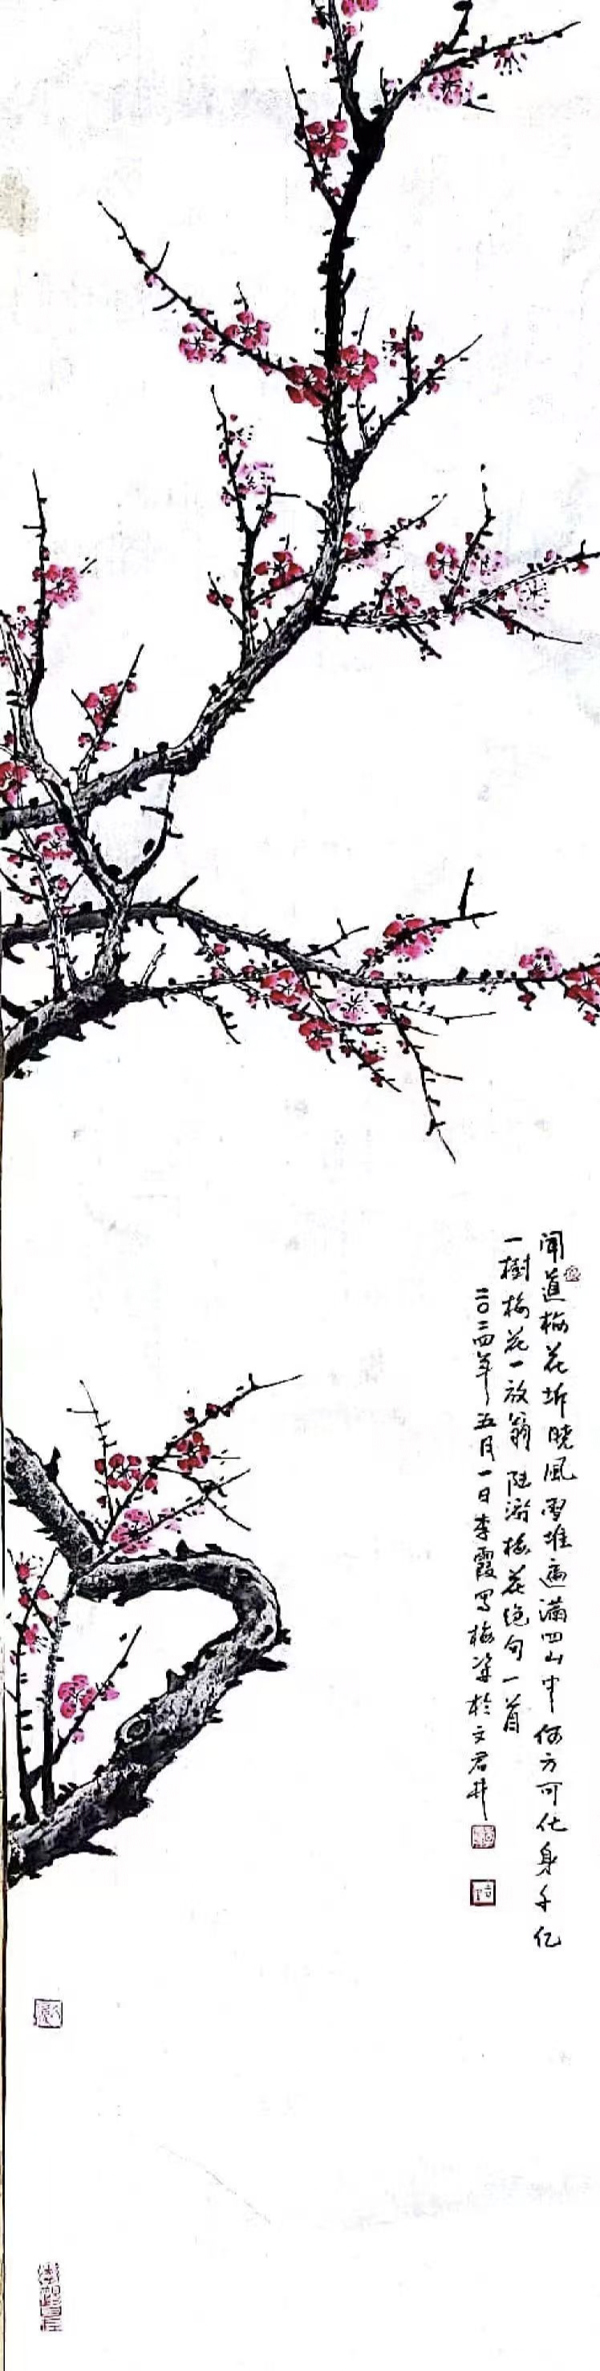 闻道梅花坼晓风雪堆遍满四山中何方可化身千亿
一樹梅花一放翁 陆游梅花绝句一首
二〇二四年五月一日李霞写梅并於文君井